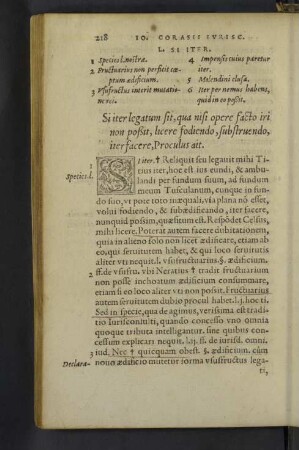 218 IO. CORASII IVRISC.
L. SI ITER.
1 Species l. nostræ.
2 Fructuarius non perficit cœptum ædificium.
3 Vsusfructus interit mutatione rei.
4 Impensis cuius paretur iter.
5 Molendini clusa.
6 Iter per nemus habens, quid in eo possit.
Si iter legatum sit, qua nisi opere facto iri
non possit, licere fodiendo, substruendo,
iter facere, Proculus ait.
1
Species l.
SI iter. † Reliquit seu legauit mihi Titius
iter, hoc est ius eundi, & ambulandi
per fundum suum, ad fundum
meum Tusculanum, conque in fundo
suo, vt pote toto inæquali, via plana nō esset,
volui fodiendo, & subædificando, iter facere,
nunquid possim, quæsitum est. Respōdet Celsus,
mihi licere. Poterat autem facere dubitationem,
quia in alieno solo non licet ædificare, etiam ab
eo, qui seruitutem habet, & qui loco seruitutis
aliter vti nequit. l. vsufructuarius. §. ædificium.
2 ff. de vsufru. vbi Neratius † tradit fructuarium
non posse inchoatum ædificium consummare,
etiam si eo loco aliter vti non possit. Fructuarium
autem seruitutem dubio procul habet. l.j. hoc ti.
Sed in specie, qua de agimus, verissima est traditio
Iurisconsulti, quando concesso vno omnia
quoque tributa intelligantur. sine quibus concessum
explicari nequit. l.ij. ff. de iurisd. omni.
3 iud. Nec † quicquam obest. §. ædificium. cùm
Declara- nouo ædificio mutetur forma vsusfructus legati,